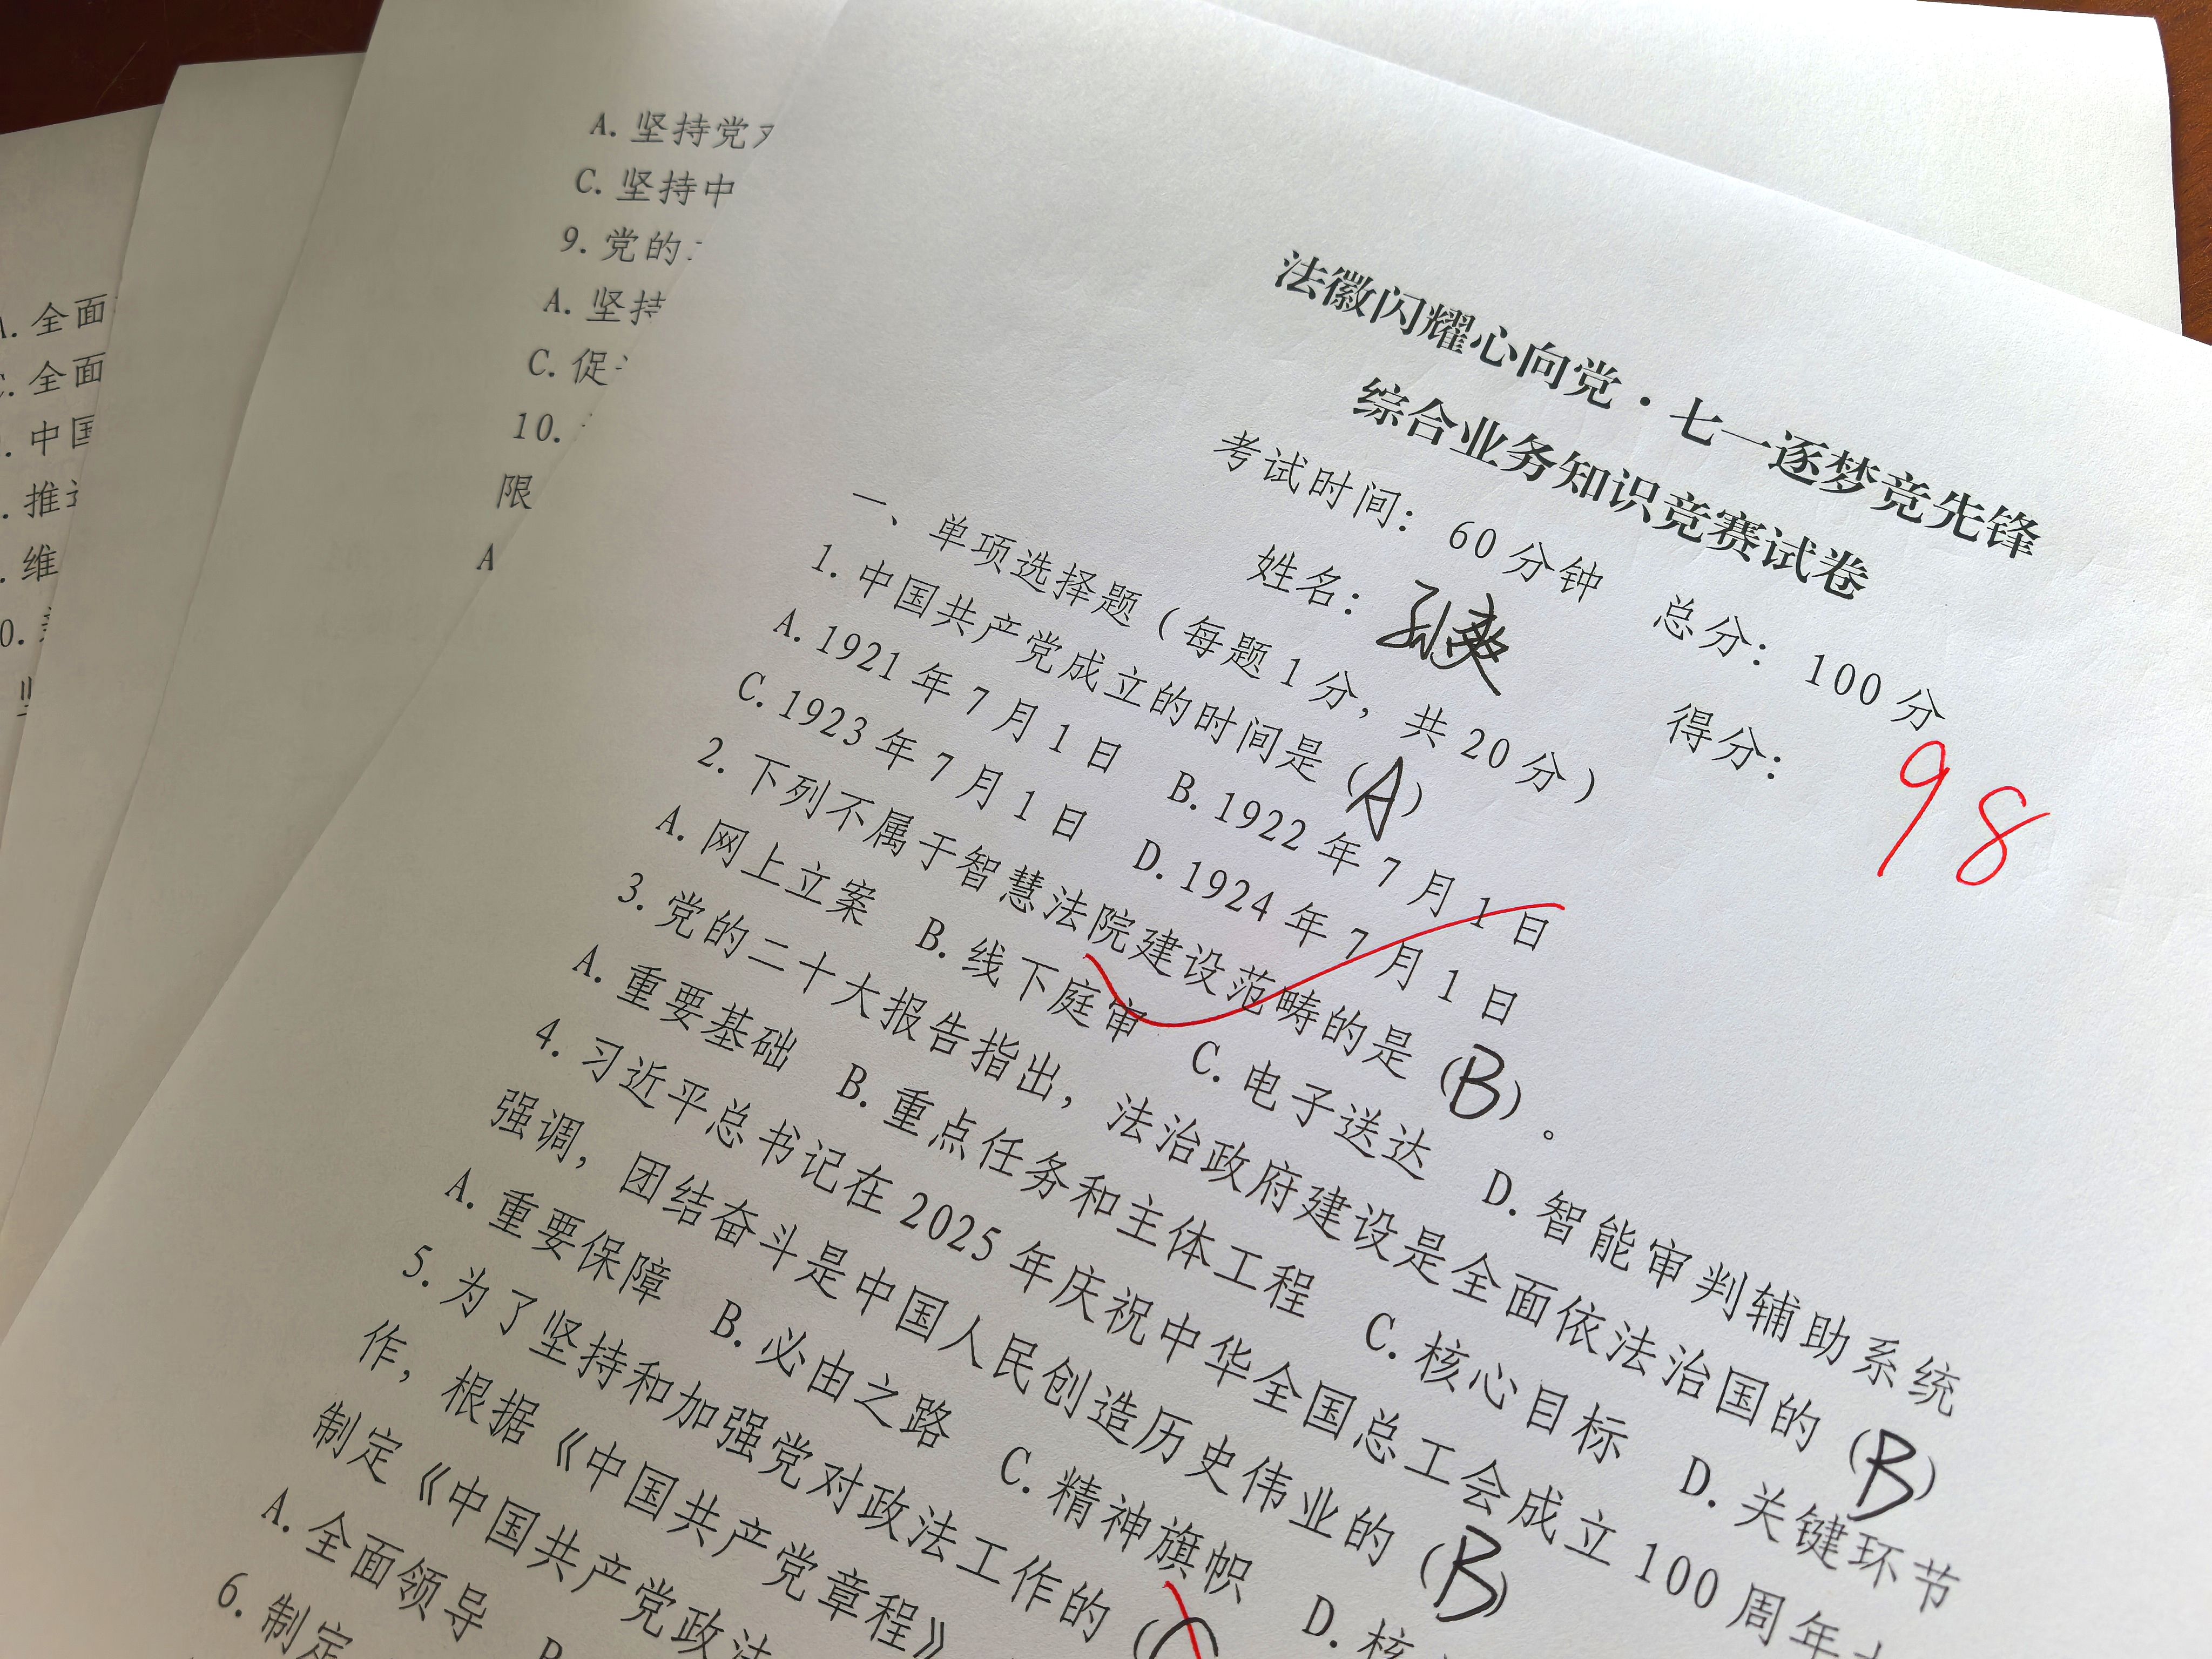 法徽闪耀心向党·七一逐梦竞先锋
综合业务知识竞赛试卷
考试时间：60分钟 总分：100分
姓名：孙爽 得分：98
一、单项选择题（每题1分，共20分）
1. 中国共产党成立的时间是（A）
A. 1921年7月1日 B. 1922年7月1日
C. 1923年7月1日 D. 1924年7月1日
2. 下列不属于智慧法院建设范畴的是（B）。
A. 网上立案 B. 线下庭审 C. 电子送达 D. 智能审判辅助系统
3. 党的二十大报告指出，法治政府建设是全面依法治国的（B）
A. 重要基础 B. 重点任务和主体工程 C. 核心目标 D. 关键环节
4. 习近平总书记在2025年庆祝中华全国总工会成立100周年
强调，团结奋斗是中国人民创造历史伟业的（B）
A. 重要保障 B. 必由之路 C. 精神旗帜 D. 核
5. 为了坚持和加强党对政法工作的（
作，根据《中国共产党章程》
制定《中国共产党政法
A. 全面领导 B
6. 制定
A. 坚持党
C. 坚持中
9. 党的
A. 坚持
C. 促
10.
限
A
A. 全面
C. 全面
. 中国
. 推
. 维
0.